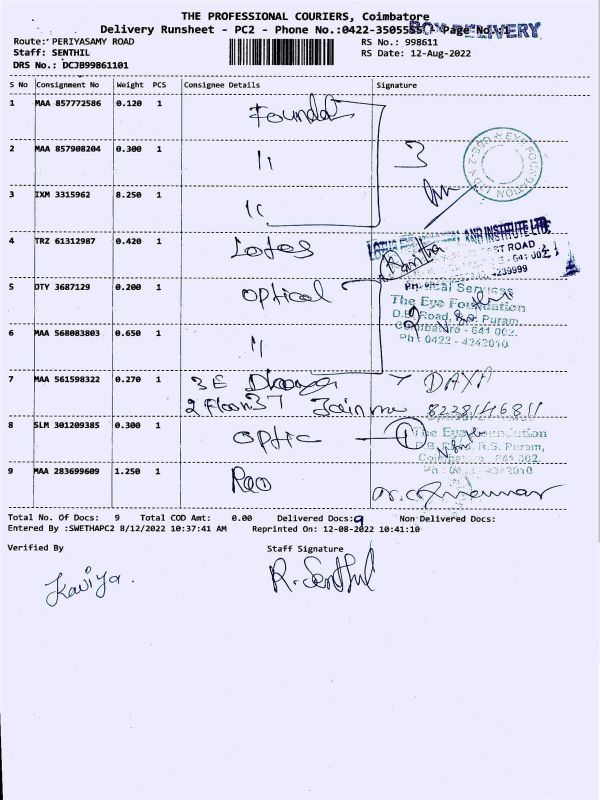 THE PROFESSIONAL COURIERS, Coimbatore
Delivery Runsheet - PC2 - Phone No.:0422-3505555 Page No.:1
BOY DELIVERY
Route: PERIYASAMY ROAD RS No.: 998611
Staff: SENTHIL RS Date: 12-Aug-2022
DRS No.: DCJB99861101
S No Consignment No Weight PCS Consignee Details Signature
1 MAA 857772586 0.120 1
2 MAA 857908204 0.300 1 11 3
EYE FOUNDATION LTD
3 IXM 3315962 8.250 1
4 TRZ 61312987 0.420 1 Lotus
AND INSTITUTE LTD
ST ROAD
Kavitha
641 002
-239999
5 DTY 3687129 0.200 1 Optical
The Eye Foundation
D.B. Road, R.S. Puram,
Coimbatore - 641 002.
Ph : 0422 - 4242010
6 MAA 568083803 0.650 1 11
7 MAA 561598322 0.270 1 3E DAYA
2 Floor 37 Jain
8 SLM 301209385 0.300 1 Optic 1
The Eye Foundation
D.B. Road, R.S. Puram,
Coimbatore - 641 002.
Ph : 0422 - 4242010
9 MAA 283699609 1.250 1 Rao
Total No. Of Docs: 9 Total COD Amt: 0.00 Delivered Docs: 9 Non Delivered Docs:
Entered By :SWETHAPC2 8/12/2022 10:37:41 AM Reprinted On: 12-08-2022 10:41:10
Verified By Staff Signature
Kaviya. R. Senthil